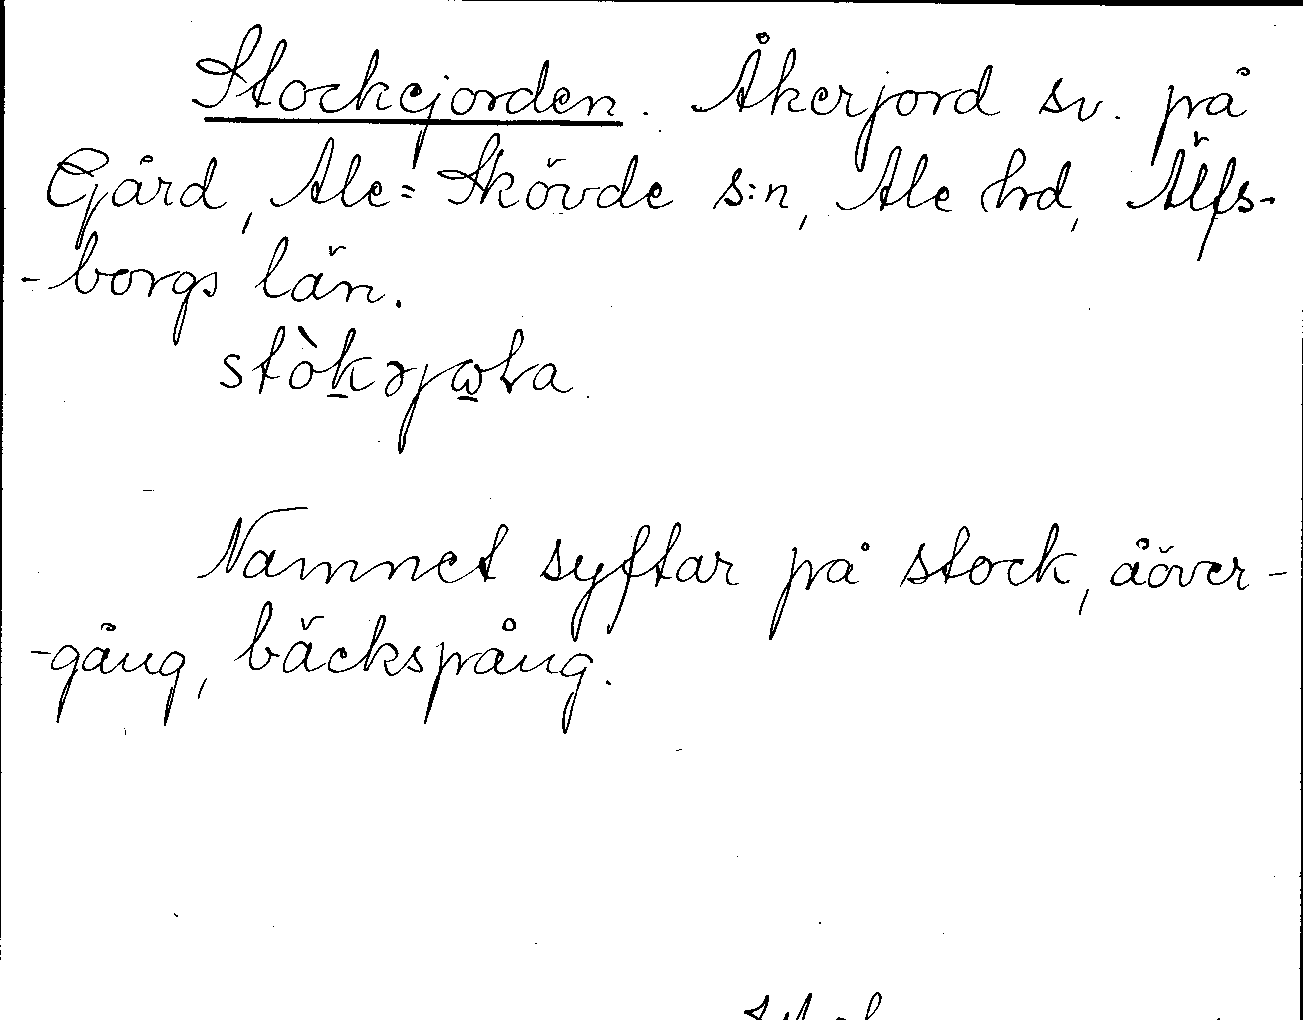 Stockejorden. Åkerjord sv. på
Gård, Ale=Skövde s:n, Ale hd, Älfs-
-borgs län.
stòkəjωta
Namnet syftar på stock, åöver-
-gång, bäckspång.